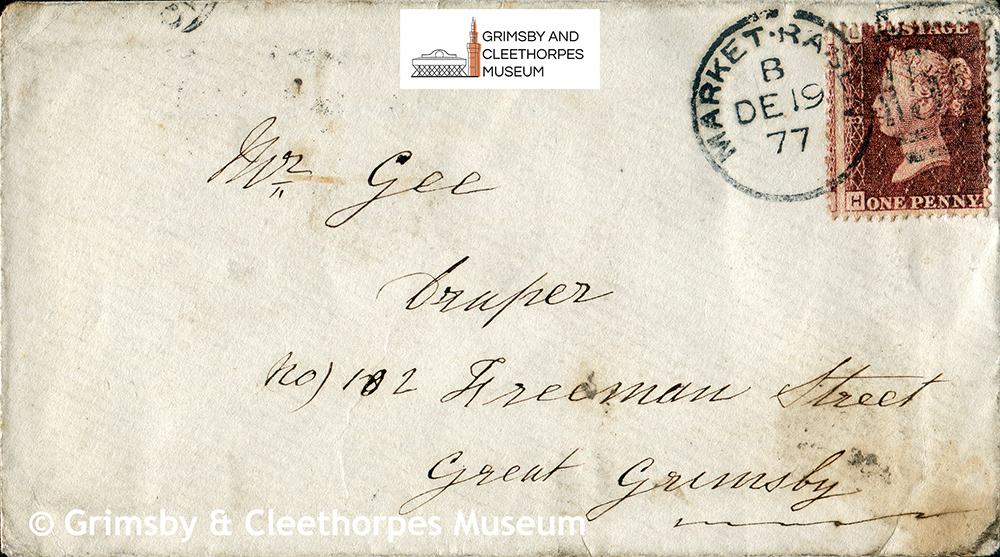 GRIMSBY AND
CLEETHORPES
MUSEUM
MARKET·RA
B
DE 19
77
POSTAGE
H ONE PENNY
Mr Gee
Draper
No) 102 Freeman Street
Great Grimsby
© Grimsby & Cleethorpes Museum